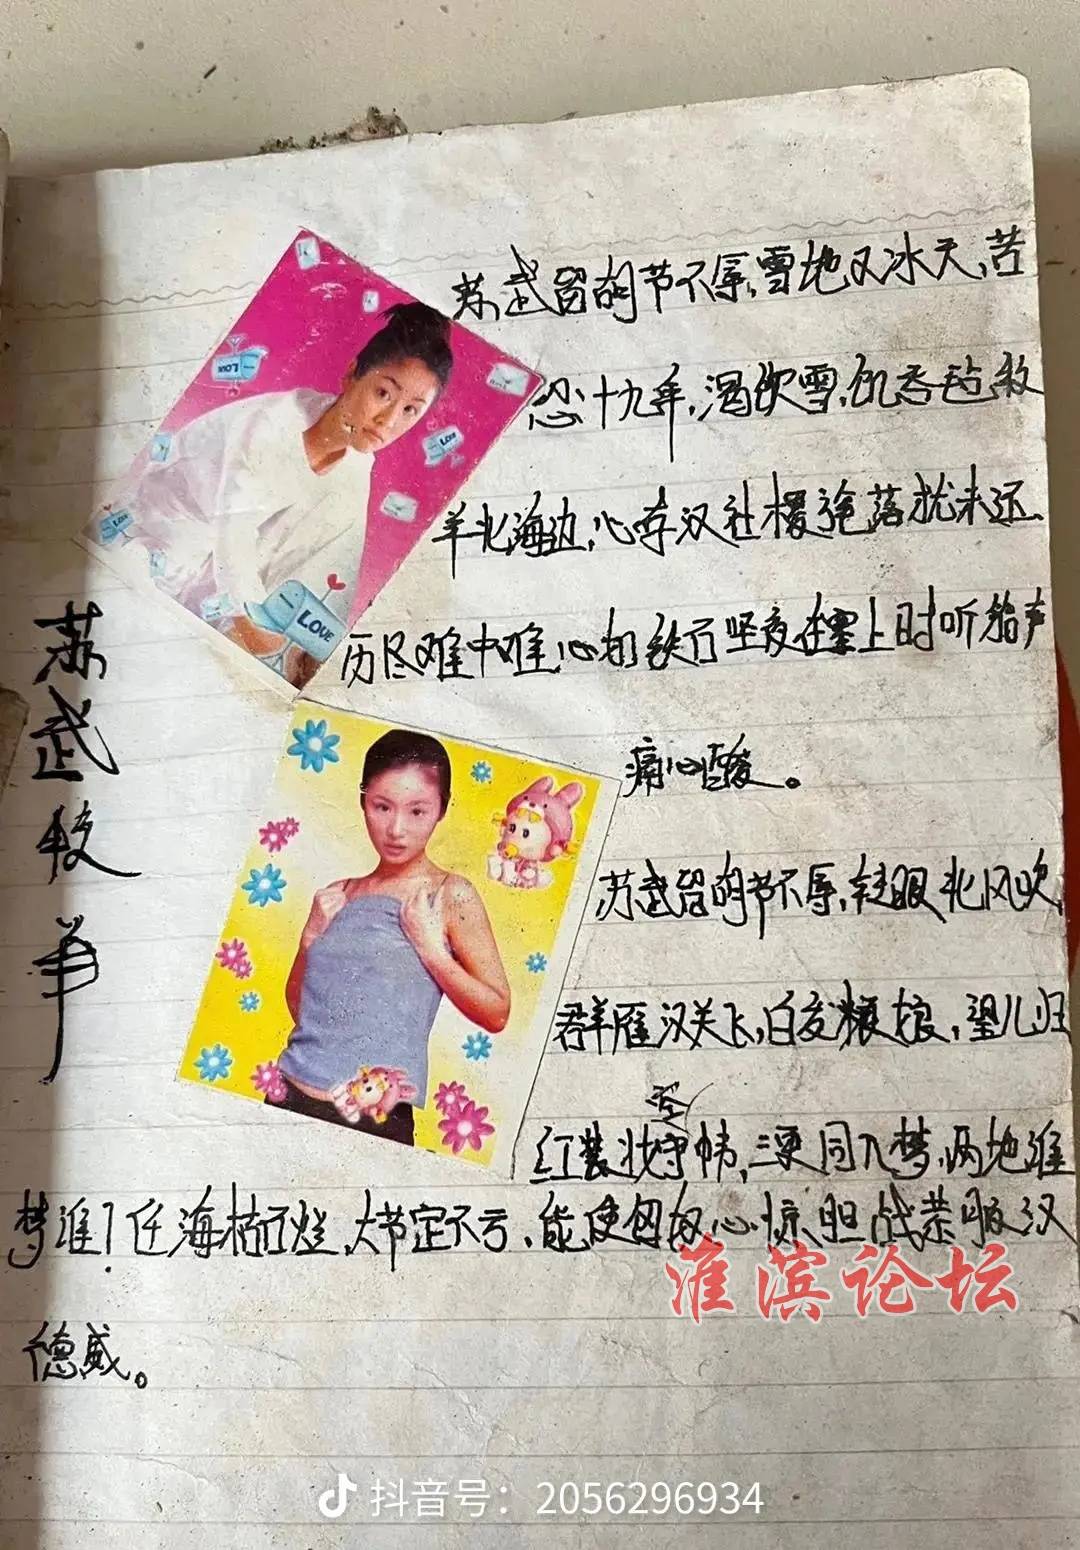 苏武牧羊
苏武留胡节不辱,雪地又冰天,苦
忍十九年,渴饮雪,饥吞毡牧
羊北海边,心存汉社稷旄落犹未还、
历尽难中难,心如铁石坚夜在塞上时听笳声
痛心酸。
苏武留胡节不辱,转眼北风吹,
群雁汉关飞,白发娘,望儿归
空
红装守帏,三更同入梦,两地谁
梦谁?任海枯石烂,大节定不亏,能使匈奴心惊胆战恭服汉
德威。
LOVE
LOVE
LOVE
LOVE
淮滨论坛
抖音号:2056296934